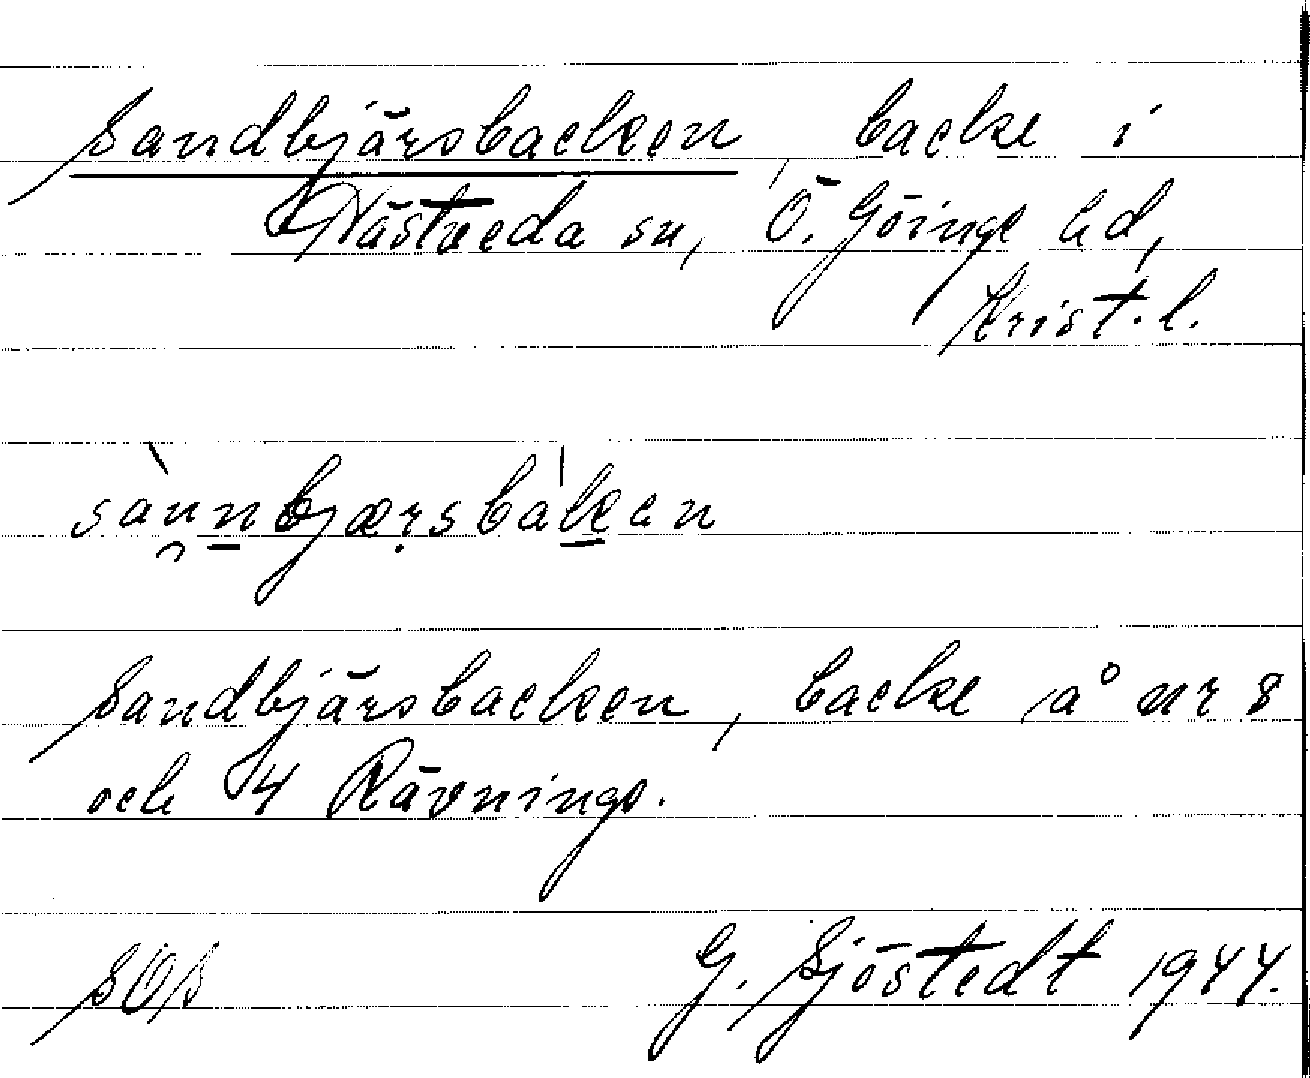 Sandbjärsbacken, backe i
Hästveda sn, Ö. Göinge hd,
Krist. l.
sànnbjærsbakan
Sandbjärsbacken, backe å nr 8
och 4 Rävninge.
SOS
G. Sjöstedt 1944.